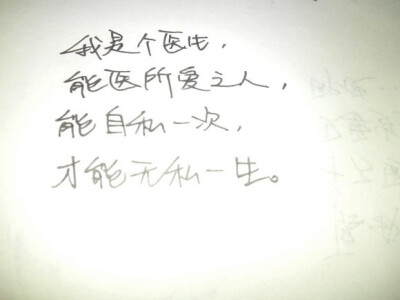 我是个医生，
能医所爱之人，
能自私一次，
才能无私一生。